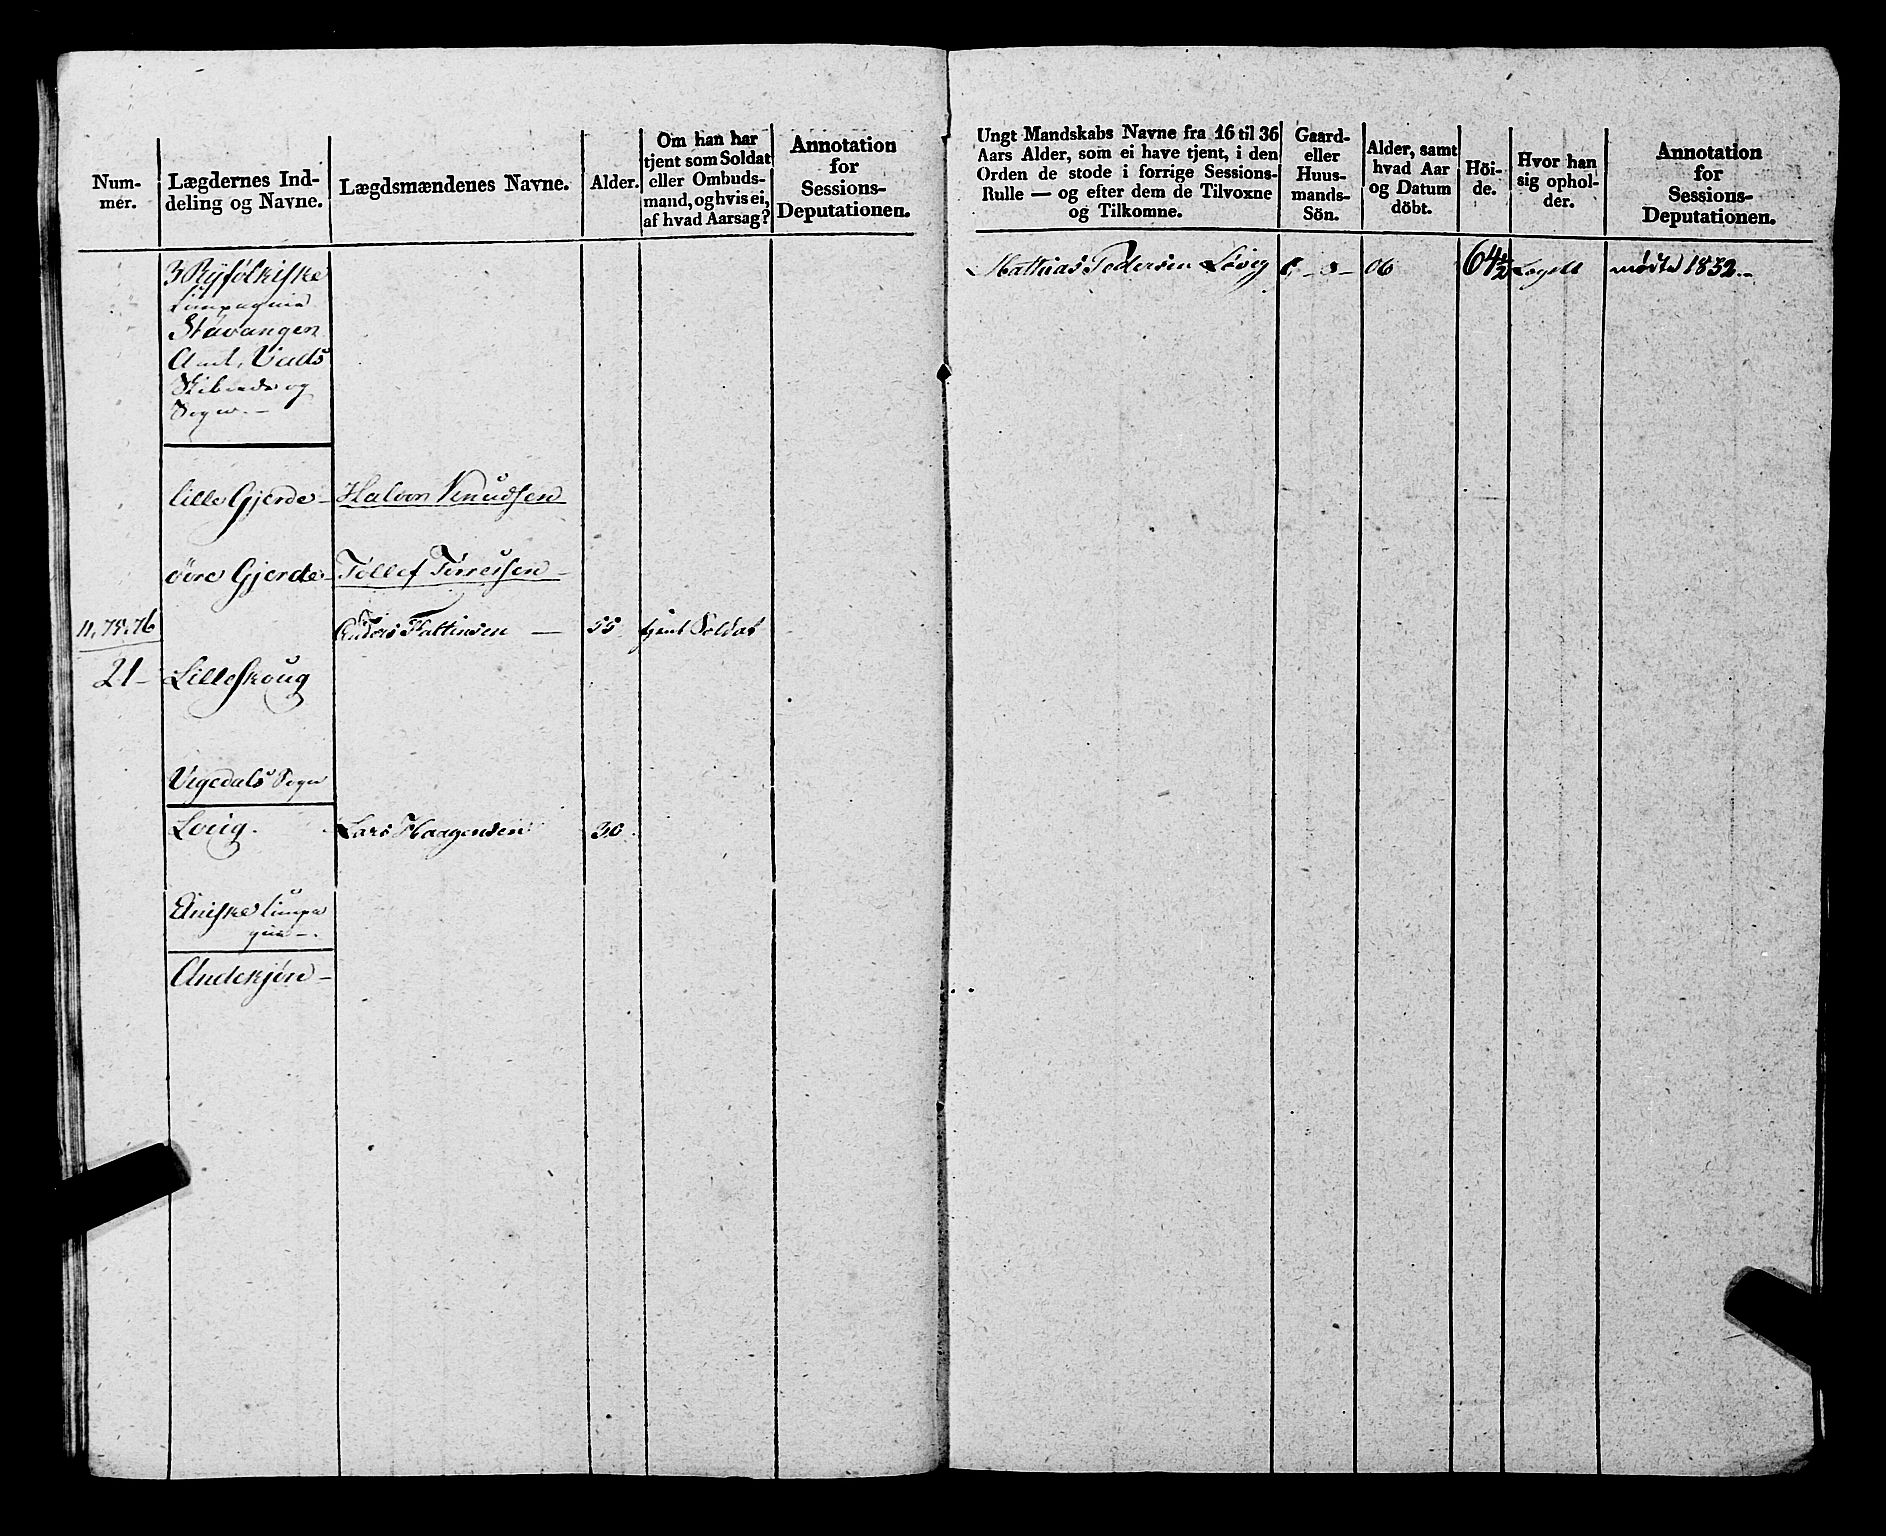 Num-
mer.
Lægdernes Ind-
deling og Navne.
Lægdsmændenes Navne.
Alder.
Om han har
tjent som Soldat
eller Ombuds-
mand, og hvis ei,
af hvad Aarsag?
Annotation
for
Sessions-
Deputationen.
3 Ryfølkiske
Compagnie
Stavanger
Amt, Vads
Skibrede og
Sogn. -
lille Gjerde - Halvor Knudsen
övre Gjerde - Tollef Torressen -
11, 75, 76 Anders Fattinsen - 55 tjent Soldat
21 - Lilleskoug
Vigedals Sogn
Lovig. Lars Haagensen 30.
Ölniske Compa
gnie -.
Andekjøn -
Ungt Mandskabs Navne fra 16 til 36
Aars Alder, som ei have tjent, i den
Orden de stode i forrige Sessions-
Rulle — og efter dem de Tilvoxne
og Tilkomne.
Gaard-
eller
Huus-
mands-
Sön.
Alder, samt
hvad Aar
og Datum
döbt.
Höi-
de.
Hvor han
sig ophol-
der.
Annotation
for
Sessions-
Deputationen.
Mathias Pedersen Lövig G - S - 06 64½ Logdt mödte 1832 -